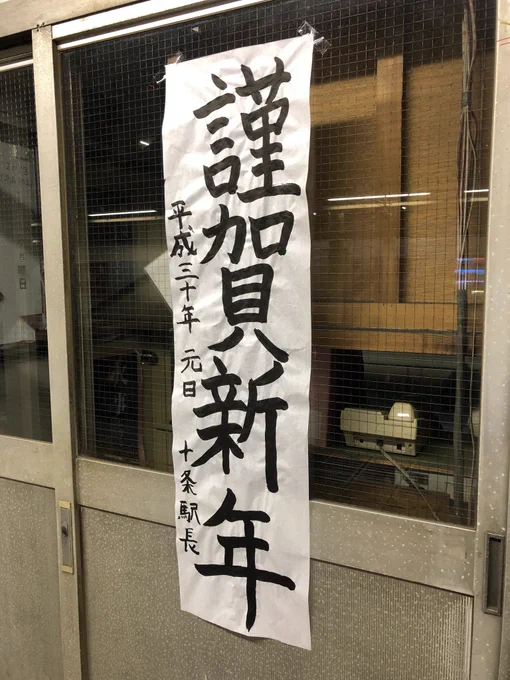 謹賀新年
平成三十年 元日 十条駅長